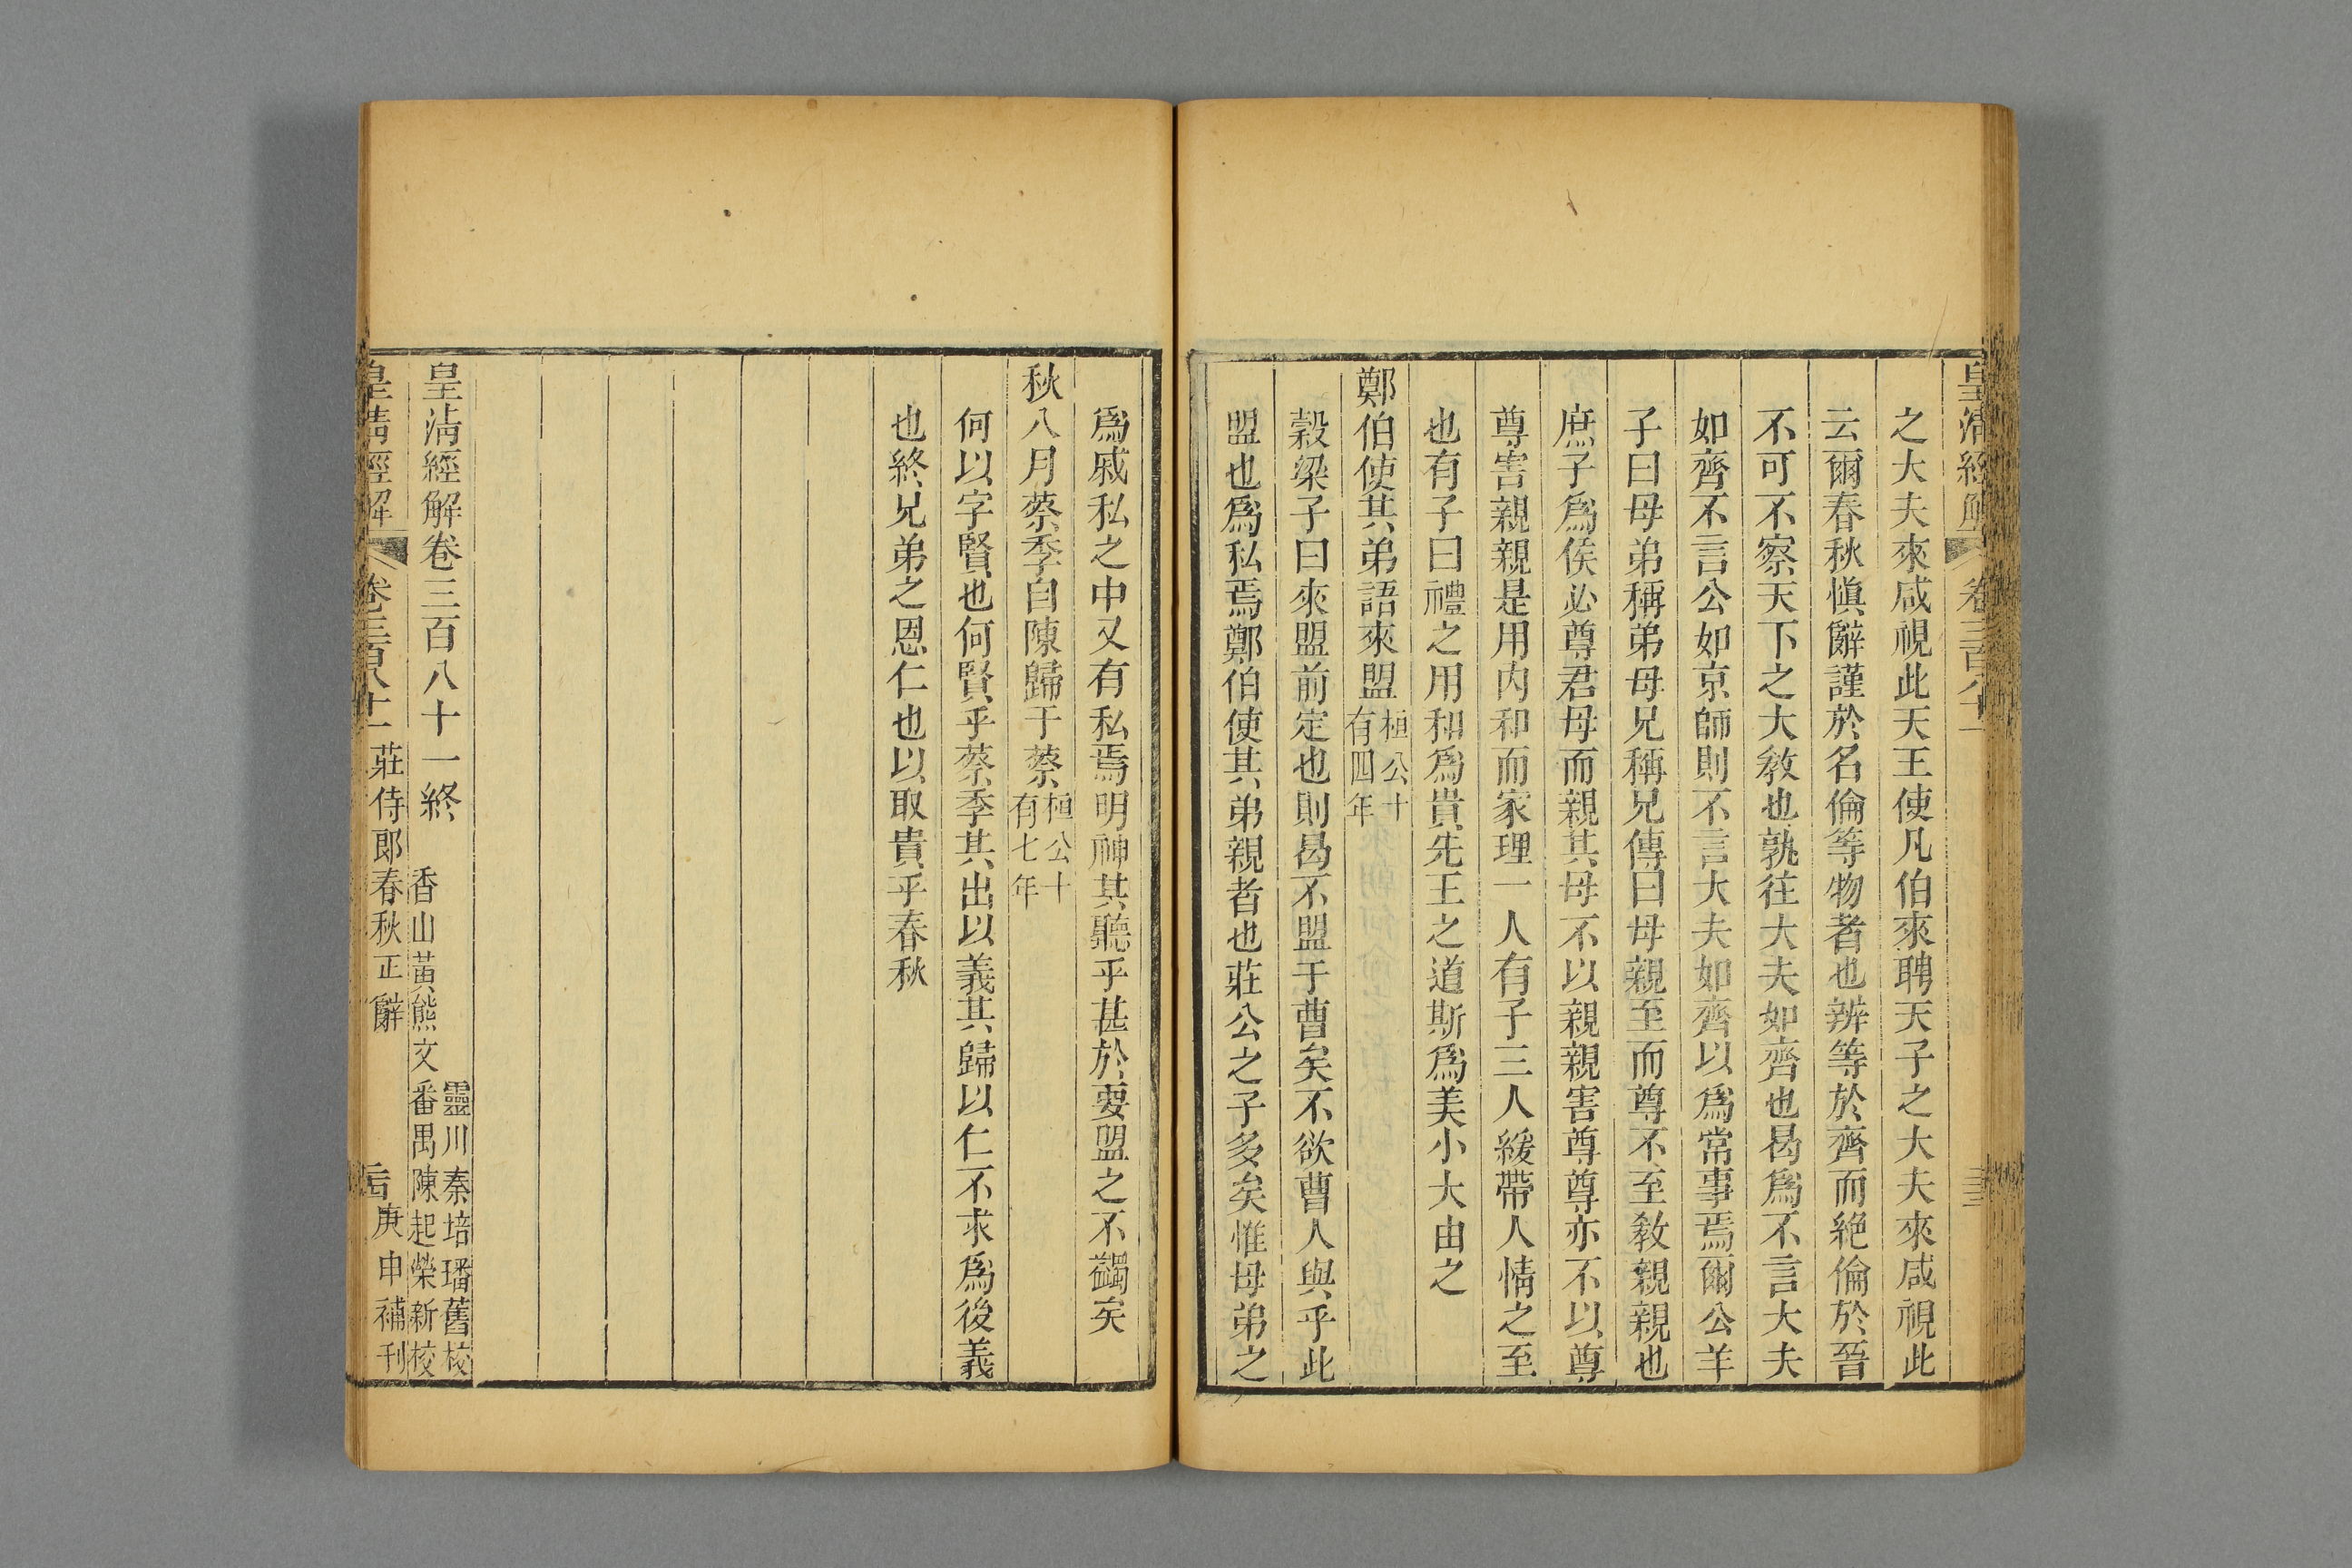 皇清經解 卷三百八十一
之大夫來咸視此天王使凡伯來聘天子之大夫來咸視此
云爾春秋愼辭謹於名倫等物者也辨等於齊而絶倫於晉
不可不察天下之大教也孰往大夫如齊也曷爲不言大夫
如齊不言公如京師則不言大夫如齊以爲常事焉爾公羊
子曰母弟稱弟母兄稱兄傳曰母親至而尊不至教親親也
庶子爲侯必尊君母而親其母不以親親害尊尊亦不以尊
尊害親親是用内和而家理一人有子三人緩帶人情之至
也有子曰禮之用和爲貴先王之道斯爲美小大由之
鄭伯使其弟語來盟桓公十有四年
穀梁子曰來盟前定也則曷不盟于曹矣不欲曹人與乎此
盟也爲私焉鄭伯使其弟親者也莊公之子多矣惟母弟之
爲戚私之中又有私焉明神其聽乎甚於要盟之不蠲矣
秋八月蔡季自陳歸于蔡桓公十有七年
何以字賢也何賢乎蔡季其出以義其歸以仁不求爲後義
也終兄弟之恩仁也以取貴乎春秋
皇清經解卷三百八十一終
靈川秦培璠舊校
香山黃熊文 番禺陳起榮新校
皇清經解 卷三百八十一 莊侍郎春秋正辭 庚申補刊